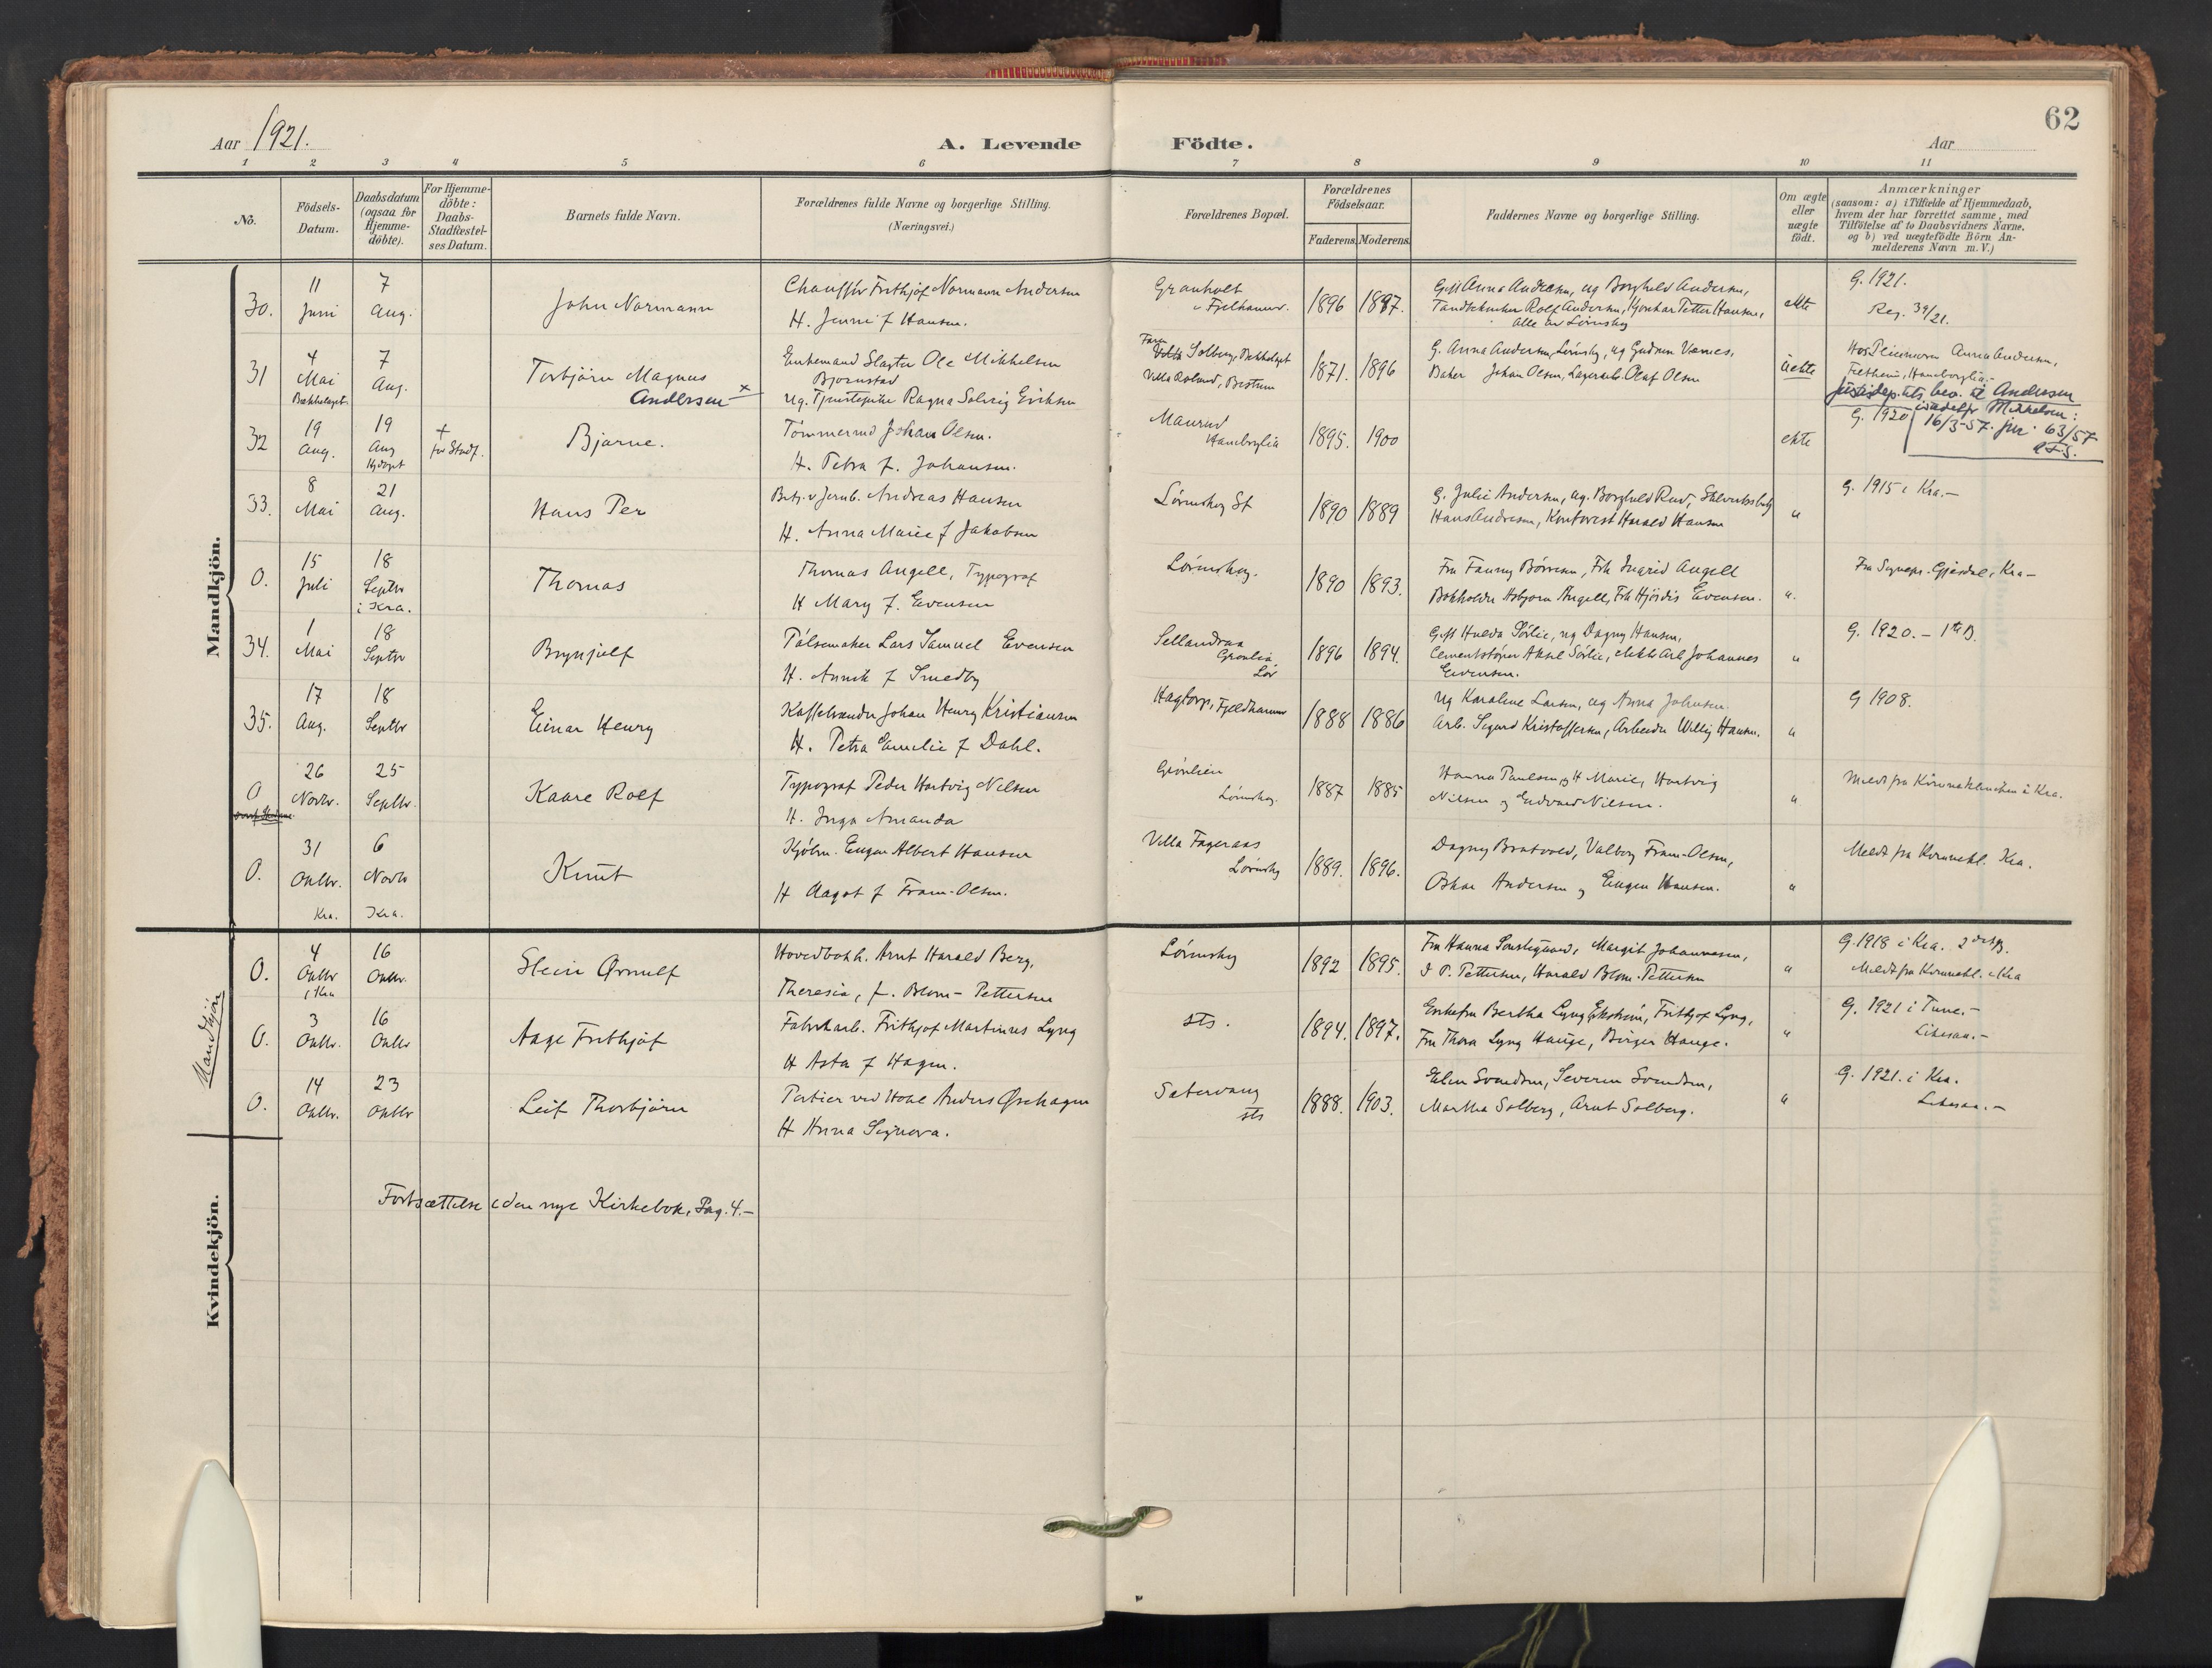 62
Aar 1921.
A. Levende Födte.
Aar
1 2 3 4 5 6 7 8 9 10 11
No.
Födsels-
Datum.
Daabsdatum
(ogsaa for
Hjemme-
döbte).
For Hjemme-
döbte:
Daabs-
Stadfæstel-
ses Datum.
Barnets fulde Navn.
Forældrenes fulde Navne og borgerlige Stilling.
(Næringsvei.)
Forældrenes Bopæl.
Forældrenes
Födselsaar.
Faderens. Moderens.
Faddernes Navne og borgerlige Stilling.
Om ægte
eller
uægte
födt.
Anmærkninger
(saasom: a) i Tilfælde af Hjemmedaab,
hvem der har forrettet samme, med
Tilföielse af to Daabsvidners Navne.
og b) ved uægtefödte Börn An-
melderens Navn m. V.)
Mandkjön.
30.
11
Juni
7
Aug.
John Normann
Chauffør Frithjof Normann Andersen
H. Jenni f Hansen.
Granholt
Fjelhammer.
1896 1897.
Gift Anna Andersen, ug Borghild Andersen,
Rolf Andersen, Petter Hansen,
alle av Lørenskog
ekte
G. 1921.
Reg. 39/21.
31
4
Mai
Bækkelaget.
7
Aug.
Torbjørn Magnus
Andersen x
Enkemand Slagter Ole Mikkelsen
Bjørnstad
ug. Tjenestepike Ragna Solveig Eriksen
Solberg, Bekkelaget
Villa Roland, Bestum
1871. 1896
G. Anna Andersen, Lørenskog, ug Gudrun Vernes,
Baker Johan Olsen, Lagerarb. Olaf Olsen
uekte
Hos Pleiemoren Anna Andersen,
Justisdep.tets bev. til Andersen
istedetfor Mikkelsen:
16/3-57. jnr. 63/57
32
19
Aug.
19
Aug
Hjdøpt
+
før Stadf.
Bjarne.
Tømmermd Johan Olsen.
H. Petra f. Johansen.
Maurud
Haneborglia
1895. 1900
ekte
G. 1920
33.
8
Mai
21
Aug.
Hans Per
Betj. v Jernb. Andreas Hansen
H. Anna Marie f Jakobsen
Lørenskog St
1890 1889
G. Julie Andersen, ug. Borghild Rud,
Hans Andresen, Kontorist Harald Hansen
"
G. 1915 i Kra.-
0.
15
Juli
18
Septbr
i Kra.
Thomas
Thomas Angell, Typograf
H Mary f. Evensen
Lørenskog.
1890 1893.
Fru Fanny Børresen, Frk Ingrid Angell
Bokholder Asbjørn Angell, Frk Hjørdis Evensen.
".
Fra Sognepr. Gjesdal, Kra-
34.
1
Mai
18
Septbr
Brynjulf
Pølsemaker Lars Samuel Evensen
H. Annik f Smedby
Sellandraa
Grønlia
Lør
1896 1894.
Gift Hulda Sørlie, ug Dagny Hansen,
Cementstøper Aksel Sørlie, Johannes
Evensen.
"
G. 1920. - 1ste B.
35.
17
Aug.
18
Septbr
Einar Henry
Johan Henry Kristiansen
H. Petra Emelie f Dahl.
Hagtorp, Fjeldhammer
1888 1886
ug Karoline Larsen, ug Anna Johnsen.
Arb. Sigurd Kristoffersen, Arbeider Willy Hansen.
"
G 1908.
0
26
Novbr.
25
Septbr.
Kaare Rolf
Typograf Peder Hartvig Nilsen
H. Inga Amanda
Grønlien
Lørenskog.
1887 1885
Hanna Paulsen og H Marie, Hartvig
Nilsen og Edvard Nilsen.
"
Meldt fra Kvinneklinikken i Kra.
0.
31
Oktbr.
Kra.
6
Novbr
Kra.
Knut
Kjøbm. Eugen Albert Hansen
H Aagot f Fram-Olsen.
Villa Fageraas
Lørenskog
1889. 1896.
Dagny Bratvold, Valborg Fram-Olsen,
Oskar Andersen og Eugen Hansen.
"
Meldt fra Kvinnekl. Kra.
Mandkjön
0.
4
Oktbr
i Kra
16
Oktbr.
Stein Ørnulf
Hovedbokh. Arnt Harald Berg,
Theresia, f. Blom-Pettersen
Lørenskog
1892 1895.
Fru Hanna Sonstegaard, Margit Johannesen,
I P. Pettersen, Harald Blom-Pettersen
"
G. 1918 i Kra. 2det B.
Meldt fra Kvinnekl. i Kra
0.
3
Oktbr.
16
Oktbr
Aage Frithjof
Fabrikarb. Frithjof Martinus Lyng
H Asta f Hagen.
sts.
1894. 1897.
Enkefru Bertha Lyng Ekstrøm, Frithjof Lyng,
Fru Thora Lyng Hauge, Birger Hauge.
"
G. 1921 i Tune.-
Likesaa.-
0.
14
Oktbr.
23
Oktbr
Leif Thorbjørn
Portier ved Hotel Anders Øvehagen
H Anna Signora.
Satervang
sts
1888. 1903.
Elen Svendsen, Severin Svendsen,
Martha Solberg, Arnt Solberg.
"
G. 1921. i Kra.
Likesaa.-
Kvindekjön.
Fortsættelse i den nye Kirkebok, Pag. 4.-